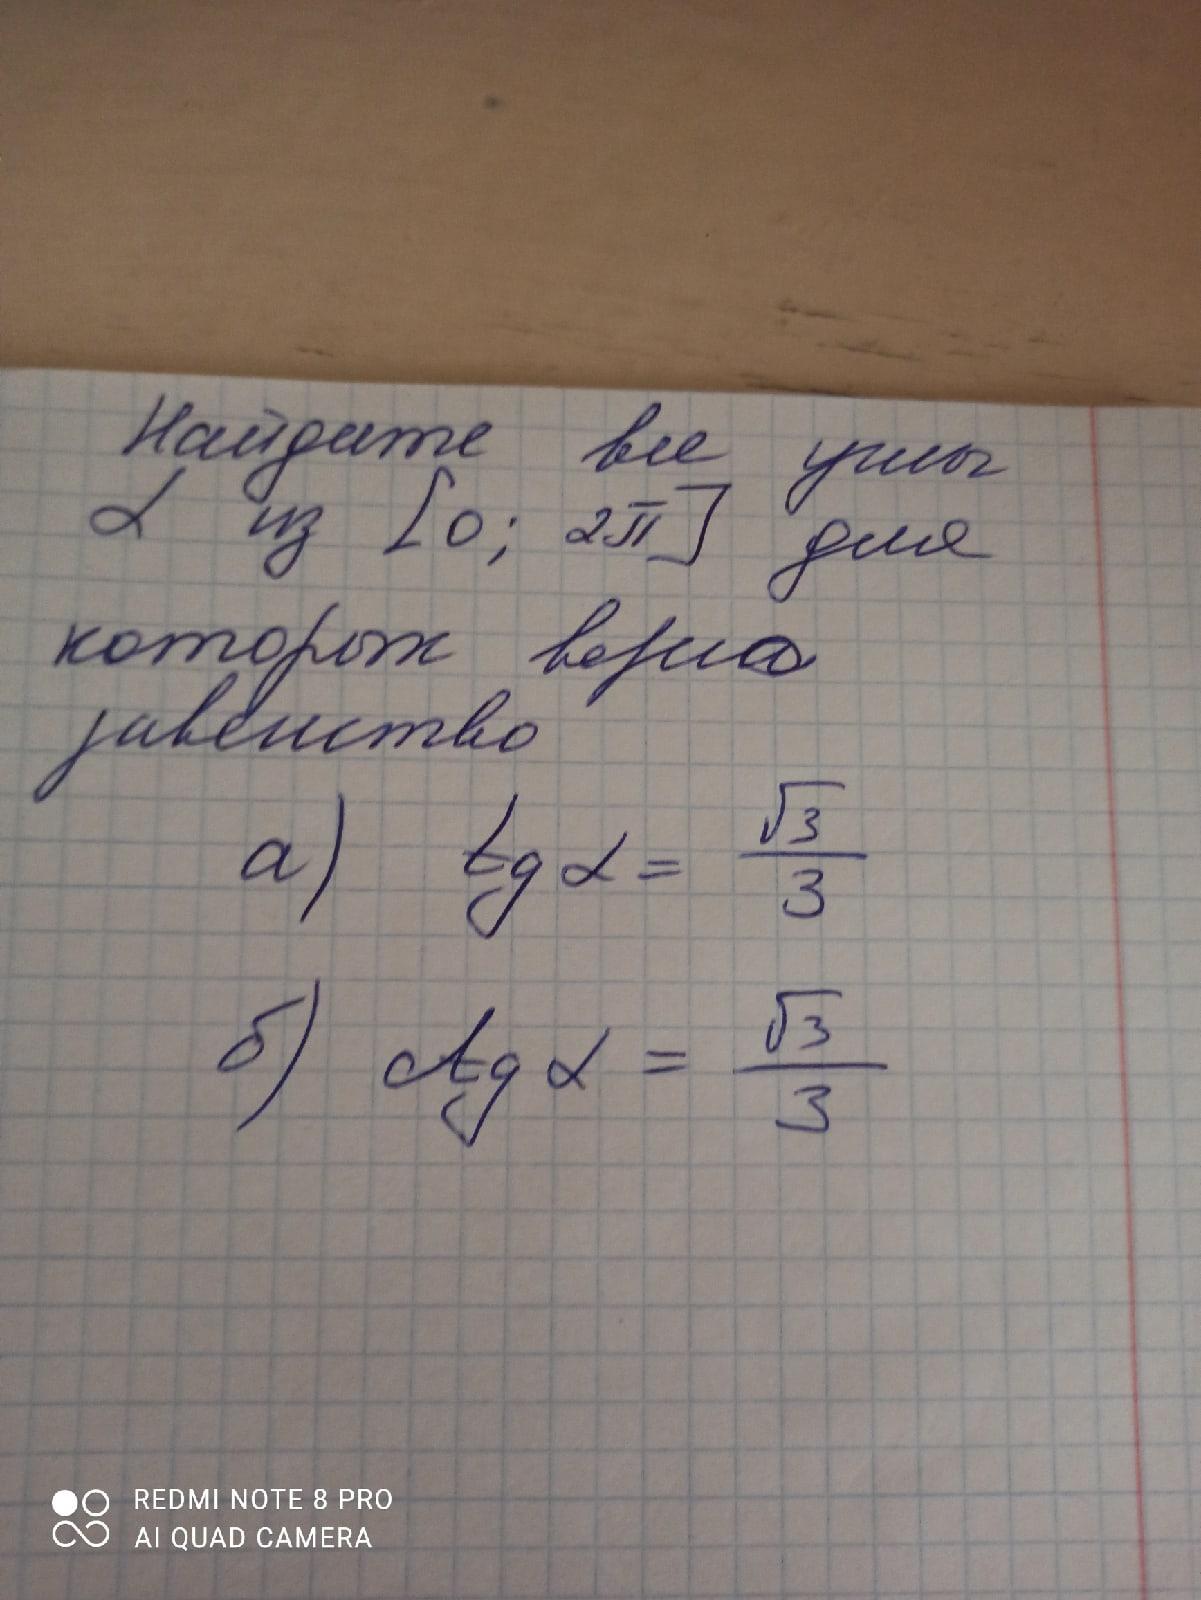 Найдите все углы
α из [0; 2π] для
которых верно
равенство
а) tg α = √3/3
б) ctg α = √3/3
REDMI NOTE 8 PRO
AI QUAD CAMERA